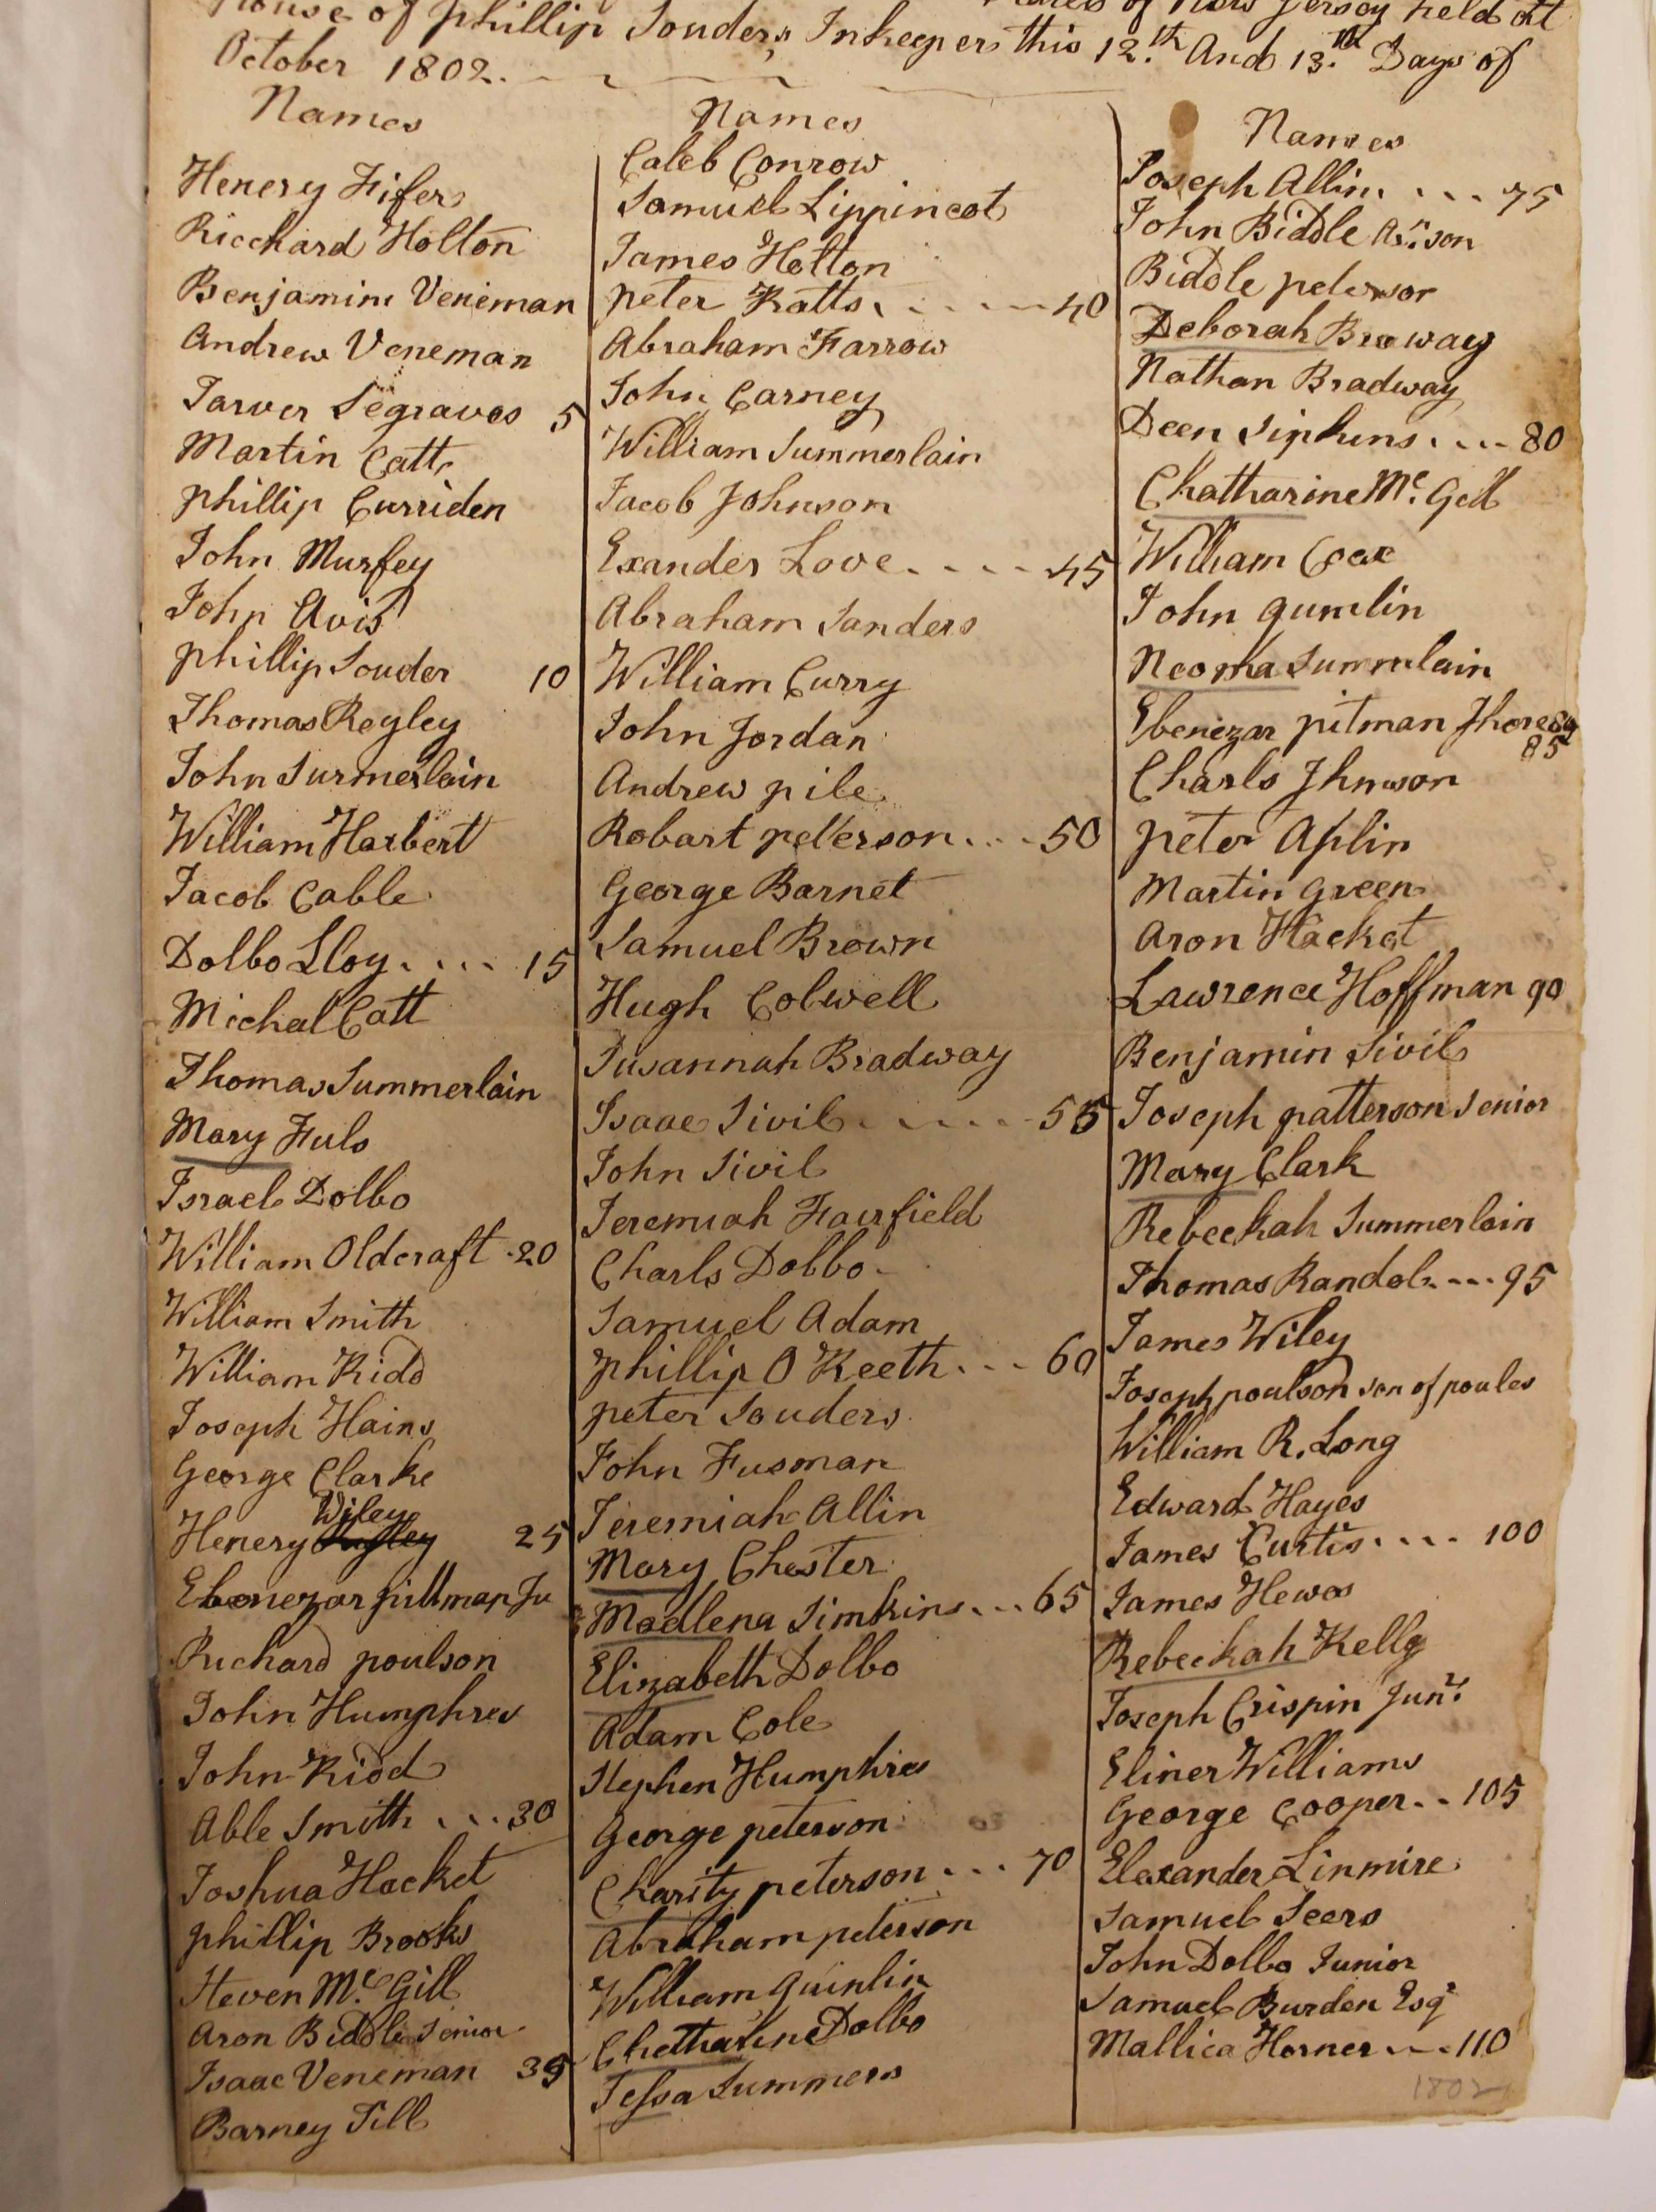 House of Phillip Souders Inkeepers this 12.th And 13.th Days of
of New Jersey held att
October 1802.
Names
Henery Fifer
Ricchard Holton
Benjamin Veneman
Andrew Veneman
Tarver Segraves 5
Martin Catt
Phillip Curriden
John Murfey
John Avis
Phillip Souder 10
Thomas Regley
John Surmerlain
William Harbert
Jacob Cable
Dolbo Lloy .... 15
Michal Catt
Thomas Summerlain
Mary Fuls
Israel Dolbo
William Oldcraft .20
William Smith
William Kidd
Joseph Hains
George Clarke
Wiley
Henery 25
Ebenezar pittman Ju
Richard poulson
John Humphres
John Kidd
Able Smith ... 30
Joshua Hacket
Phillip Brooks
Steven Mc. Gill
Aron Biddle Senior
Isaac Veneman 35
Barney Till
Names
Caleb Conrow
Samuel Lippincot
James Holton
peter Katts ..... 40
Abraham Farrow
John Carney
William Summerlain
Jacob Johnson
Exander Love .... 45
Abraham Sanders
William Curry
John Jordan
Andrew pile
Robart pettersson ... 50
George Barnet
Samuel Brown
Hugh Colwell
Susannah Bradway
Isaac Sivil ..... 55
John Sivil
Jeremiah Fairfield
Charls Dolbo
Samuel Adam
Phillip O Keeth ... 60
peter Souders
John Fusman
Jeremiah Allin
Mary Chester
Madlena Simkins ... 65
Elizabeth Dolbo
Adam Cole
Stephen Humphres
George peterson
Charity peterson ... 70
Abraham peterson
William Quinlin
Chatharine Dolbo
Tessa Summers
Names
Joseph Allin .... 75
John Biddle Ar.n son
Biddle peterson
Deborah Braway
Nathan Bradway
Deen Sipkins .... 80
Chatharine Mc. Gill
William Coax
John Qumlin
Neoma Summlain
Ebenezar pitman
85
Charls Jhnson
peter Aplin
Martin Green
Aron Hacket
Lawrence Hoffman 90
Benjamin Sivil
Joseph patterson Senior
Mary Clark
Rebeckah Summerlain
Thomas Randol .... 95
James Wiley
Joseph poulson son of poules
William R. Long
Edward Hayes
James Curtis .... 100
James Hewes
Rebeckah Kelly
Joseph Crispin Junr.
Eliner Williams
George Cooper .. 105
Elexander Linmire
Samuel Seers
John Dolbo Junior
Samuel Burden Esqr
Mallica Horner ... 110
1802